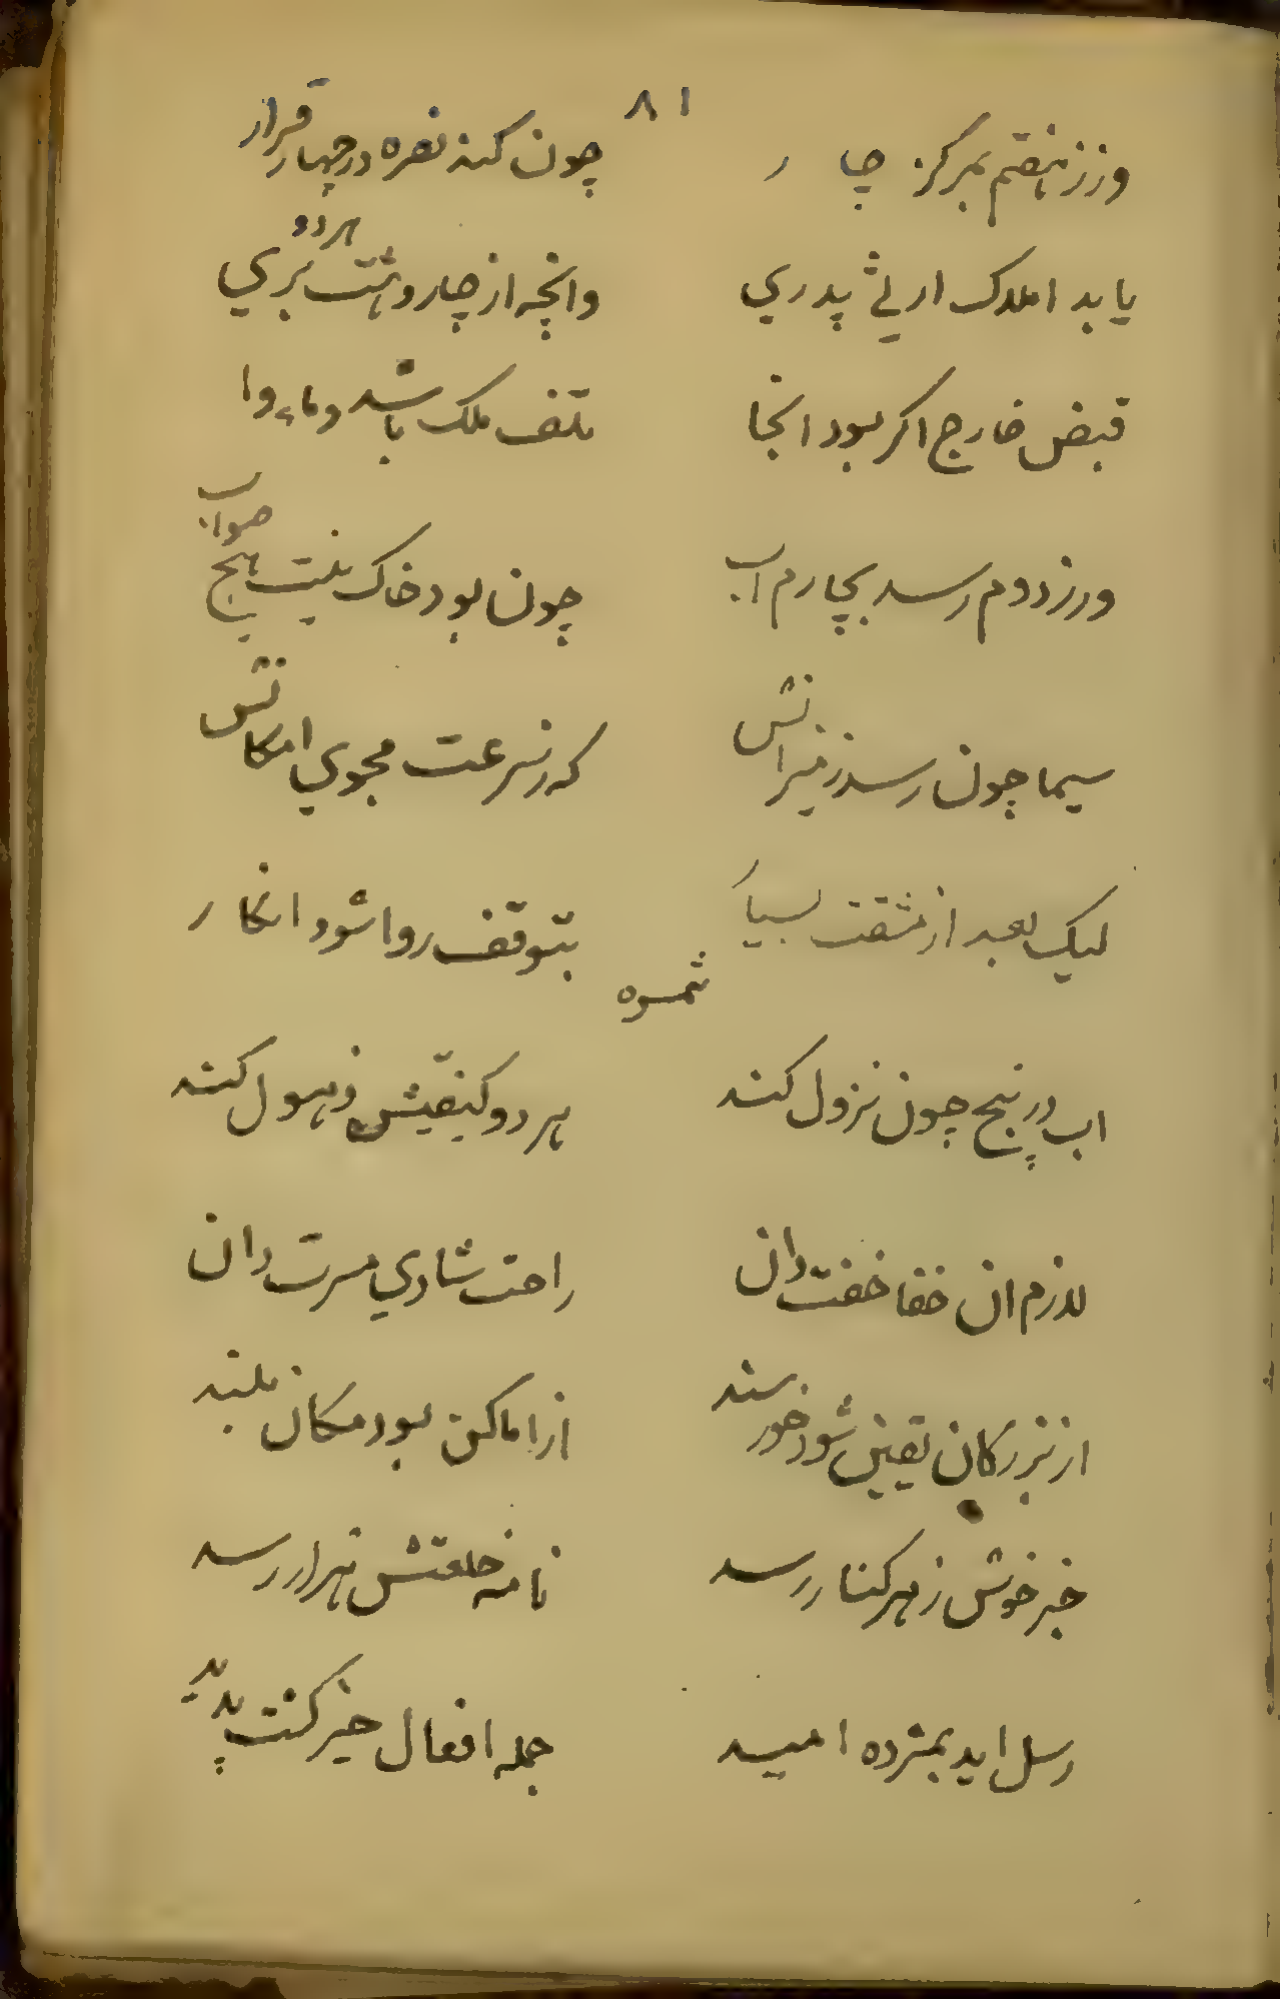 ۸۱
ورز هفتم بمرکز چار چون کند نصره در چهار قرار
یابد املاک ارثی پدری وانچه از چار و هشت هر دو بری
قبض خارج اکر بود انجا تلف ملک باشد و ماوا
ورز دوم رسد بچارم اب چون بود خاک نیست هیچ صواب
سیما چون رسد ز نیرانش که ز سرعت مجوی امکانش
لیک بعد از مشقت بسیار بتوقف روا شود انکار
ثمره
اب در پنج چون نزول کند هر دو کیفیتش ذهول کند
لازم ان خفا خفت دان راحت شادی مسرت دان
از بزرکان یقین شود خورسند از اماکن بود مکان بلند
خبر خوش ز هر کنار رسد نامه خلعتش هزار رسد
رسل اید بمژده امید جمله افعال خیر کشت پدید